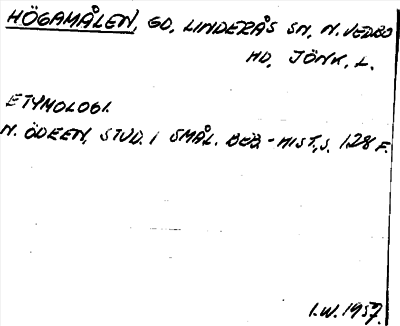 HÖGAMÅLEN, GD, LINDERÅS SN, N. VEDBO
HD, JÖNK. L.
ETYMOLOGI.
N. ÖDEEN, STUD. I SMÅL. BEB.-HIST., S. 128 F.
I.W. 1957.